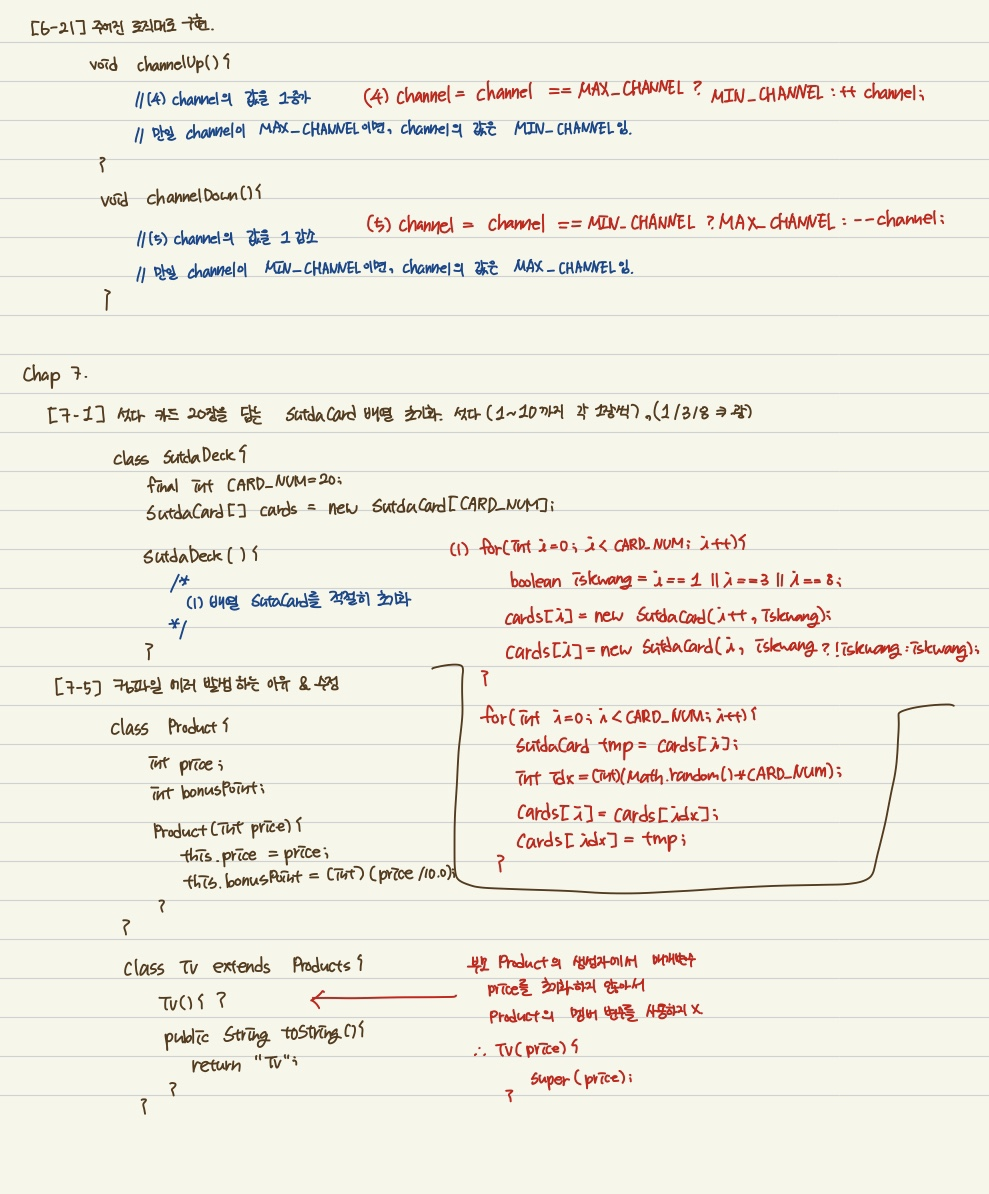 [6-21] 주어진 로직대로 구현.
void channelUp(){
//(4) channel의 값을 1증가
(4) channel = channel == MAX_CHANNEL ? MIN_CHANNEL : ++channel;
// 만일 channel이 MAX_CHANNEL이면, channel의 값은 MIN_CHANNEL임.
}
void channelDown(){
//(5) channel의 값을 1감소
(5) channel = channel == MIN_CHANNEL ? MAX_CHANNEL : --channel;
// 만일 channel이 MIN_CHANNEL이면, channel의 값은 MAX_CHANNEL임.
}
Chap 7.
[7-1] 섯다 카드 20장을 담는 SutdaCard 배열 초기화. 섯다 (1~10까지 각 1장씩), (1/3/8 ⇒ 광)
class SutdaDeck{
final int CARD_NUM=20;
SutdaCard[] cards = new SutdaCard[CARD_NUM];
SutdaDeck(){
/*
(1) 배열 SutaCard를 적절히 초기화
*/
}
(1) for(int i=0; i<CARD_NUM; i++){
boolean iskwang = i==1 || i==3 || i==8;
cards[i] = new SutdaCard(i++, iskwang);
cards[i] = new SutdaCard(i, iskwang ? !iskwang : iskwang);
}
for(int i=0; i<CARD_NUM; i++){
SutdaCard tmp = cards[i];
int idx = (int)(Math.random()*CARD_NUM);
cards[i] = cards[idx];
cards[idx] = tmp;
}
[7-5] 컴파일 에러 발생 하는 이유 & 수정
class Product{
int price;
int bonusPoint;
Product(int price){
this.price = price;
this.bonusPoint = (int)(price/10.0);
}
}
class Tv extends Products{
Tv(){ }
public String toString(){
return "Tv";
}
}
←
부모 Product의 생성자에서 매개변수
price를 초기화하지 않아서
Product의 멤버 변수를 사용하지 X
∴ Tv(price){
super(price);
}